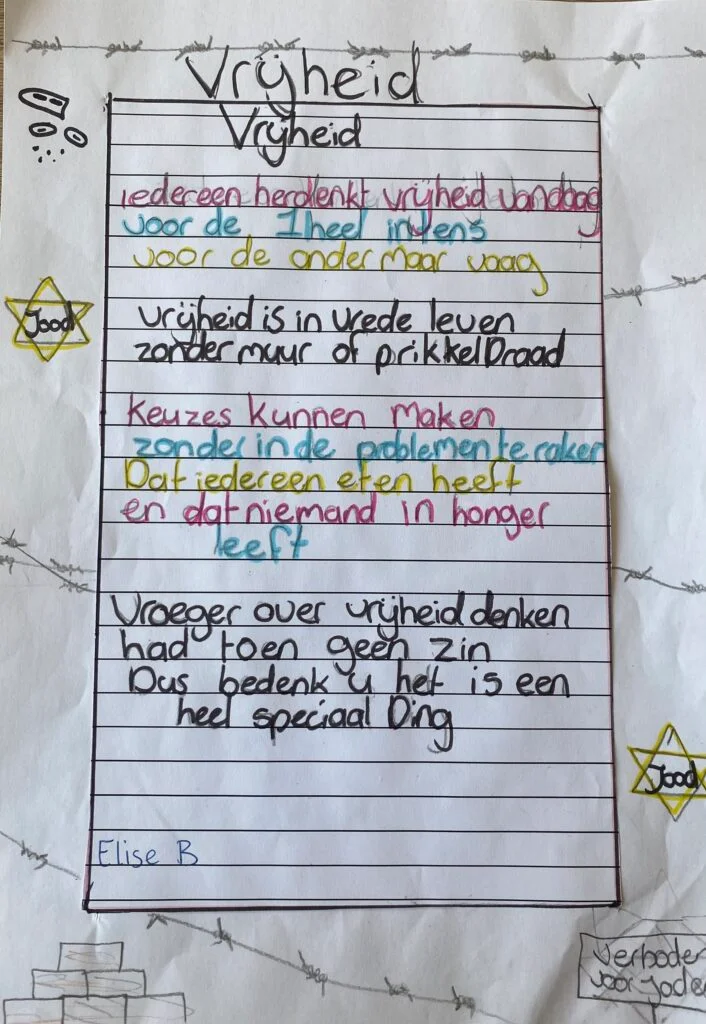 Vrijheid
Vrijheid
iedereen herdenkt vrijheid vandaag
voor de 1 heel intens
voor de onder maar vaag
Jood
vrijheid is in vrede leven
zonder muur of prikkelDraad
Keuzes kunnen Maken
zonder in de problemen te raken
Dat iedereen eten heeft
en dat niemand in honger
leeft
Vroeger over vrijheid denken
had toen geen zin
Dus bedenk u het is een
heel speciaal Ding
Jood
Elise B
Verboden
voor Joden